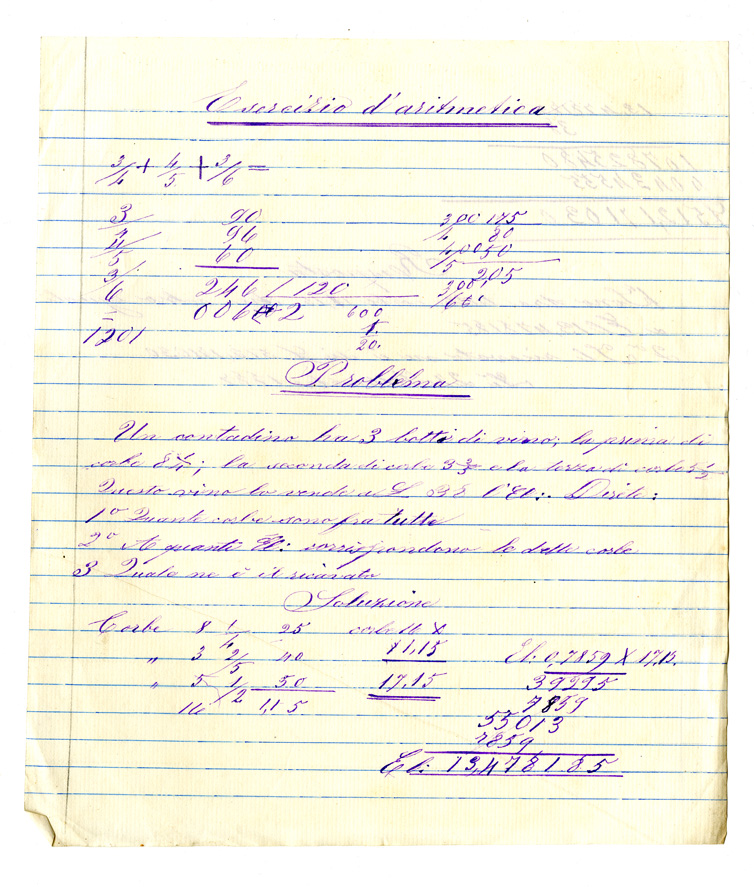 Esercizio d'aritmetica
3/4 + 4/5 + 3/6 =
3/4 90
4/5 96
3/6 60
246 / 120
006 2 600
1201
20.
300 175
4 80
400 50
5 205
300
Problema
Un contadino ha 3 botti di vino; la prima di
corbe 8 1/4; la seconda di corbe 3 2/5 e la terza di corbe 5 1/2
Questo vino lo vende a L 38 l'El:. Direte:
1º Quante corbe sono fra tutte
2º A quanti El: corrispondono le dette corbe
3 Quale ne è il ricavato
Soluzione
Corbe 8 1/4 25
" 3 2/5 40
" 5 1/2 50
16 1,15.
corbe 16 X
1,15
17,15
El: 0,7859 X 17,15.
39295
7859
55013
7859
El: 13,478185